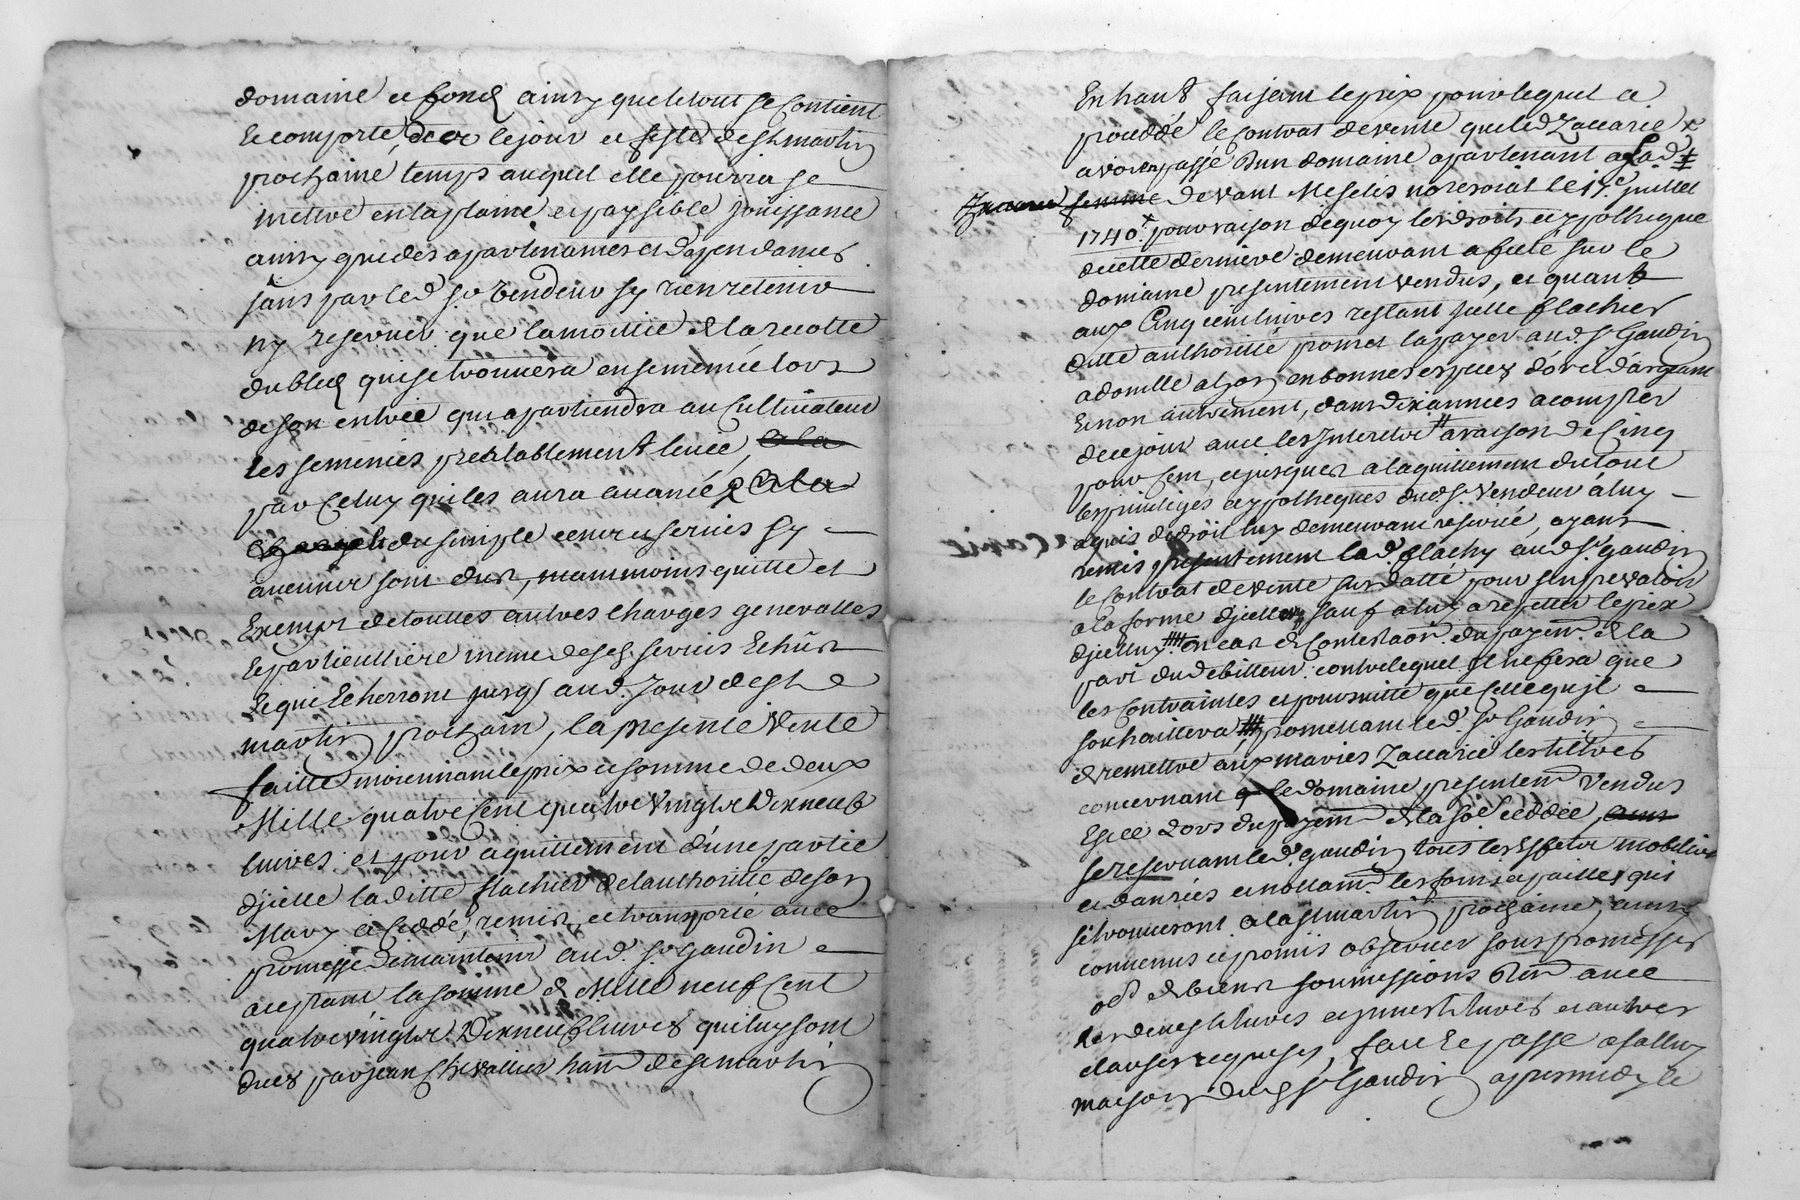 domaine et fond ainsy que le tout se Contient
Et comporte, de ce le jour et feste de st martin
prochaine temps auquel elle pourra se
mettre en la plaine et paysible jouissance
ainsy que des apartenances et dependances
sans par led sr vendeur sy rien retenir
ny reserver que la moitié de la recolte
du bled qui se trouvera ensemencé lors
de son entrée qui apartiendra au Cultivateur
les semences prealablement levée,
par Celuy qui les aura avancé
du simple cens et servis sy
aucuns sont dus, neanmoins quitte et
Exempt de touttes autres charges generalles
Et particulliere meme desd servis Echûs
Et qui Echerront jusq aud. Jour de st
martin prochain, la presente Vente
faitte moiennant le prix et somme de deux
Mille quatre Cent quatre Vingts Dixneuf
livres et pour aquittement d'une partie
d'jcelle laditte flachier de l'authorité de son
Mary a Ceddé, remis, et transporté avec
promesse de maintenir aud. sr Gaudin
aceptant la somme de Mille neuf Cent
quatre vingts Dixneuf livres qui luy sont
dues par jean Chevallier de st martin
En haut faisant le prix pour lequel a
proceddé le Contrat de vente que led Zaccarie
avoit passé d'un domaine apartenant a sad
Zaccarie femme devant Meselis no.re royal le 17.e juillet
1740. pour raison de quoy les droits et ypotheque
de cette derniere demeurant afecté sur le
domaine presentement vendus, et quant
aux Cinq cent livres restant jcelle flachier
ditte authorisée promet la payer aud. sr Gaudin
En non autrement, dans dix années a compter
de ce jour avec les Interets a raison de Cinq
pour Cent, et jusques a l'aquittement du tout
les privileges et ypotheques dud sr Vendeur a luy
aquis de droit luy demeurant reservé, ayant
remis presentement lad. flachy aud sr gaudin
le Contrat de vente sus datté pour s'en prevaloir
a la forme d'jcelluy sauf a luy a repetter le prix
d'jcelluy en cas de Contestaon du payem.t de la
part du debitteur contre lequel Il ne fera que
les Contraintes et poursuitte que Celle qu'il
souhaittera promettant led sr Gaudin
de remettre aux maries Zaccarie les tittres
concernant le domaine presentem.t Vendus
Et ce Lors du payem.t de la so.e ceddée,
se reservant led. gaudin tous les Effets mobiliers
et danrées et nottam.t les foins et pailles qui
se trouveront a la st martin prochaine, ainsy
convenus et promis observer sous promesses
clauses requises, fait Et passé a
maison dud sr Gaudin apres midy le